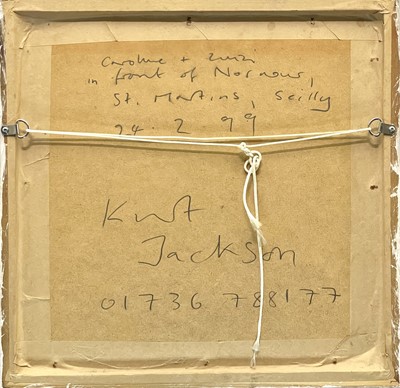 Caroline + Zinzi
in front of Nornour,
St. Martins, Scilly
24. 2 99
Kurt
Jackson
01736 788177